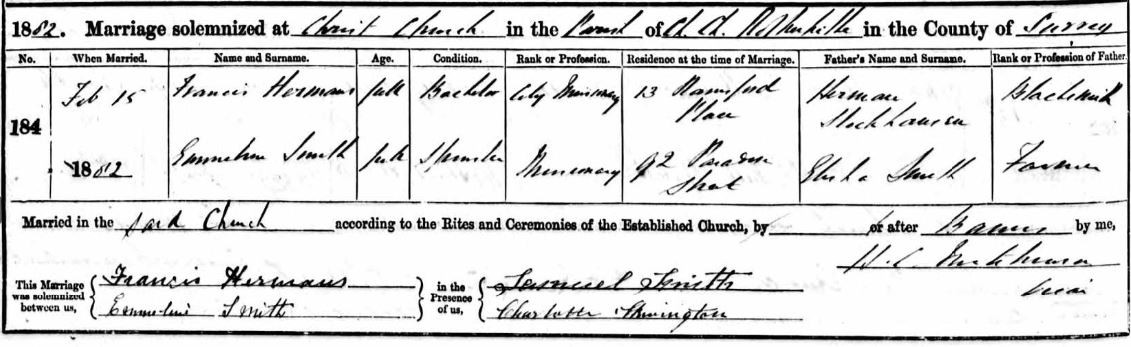 1882. Marriage solemnized at Christ Church in the Parish of Ch. Ch. Rotherhithe in the County of Surrey
No. When Married. Name and Surname. Age. Condition. Rank or Profession. Residence at the time of Marriage. Father's Name and Surname. Rank or Profession of Father.
184
Feb 15 Francis Hermans full Bachelor City Missionary 13 Place Herman Blacksmith
1882 Emmeline Smith full Spinster Missionary 92 Paradise Street Elisha Smith Farmer
Married in the said Church according to the Rites and Ceremonies of the Established Church, by or after Banns by me,
This Marriage was solemnized between us,
Francis Hermans
Emmeline Smith
in the Presence of us,
Samuel Smith
Charlotte